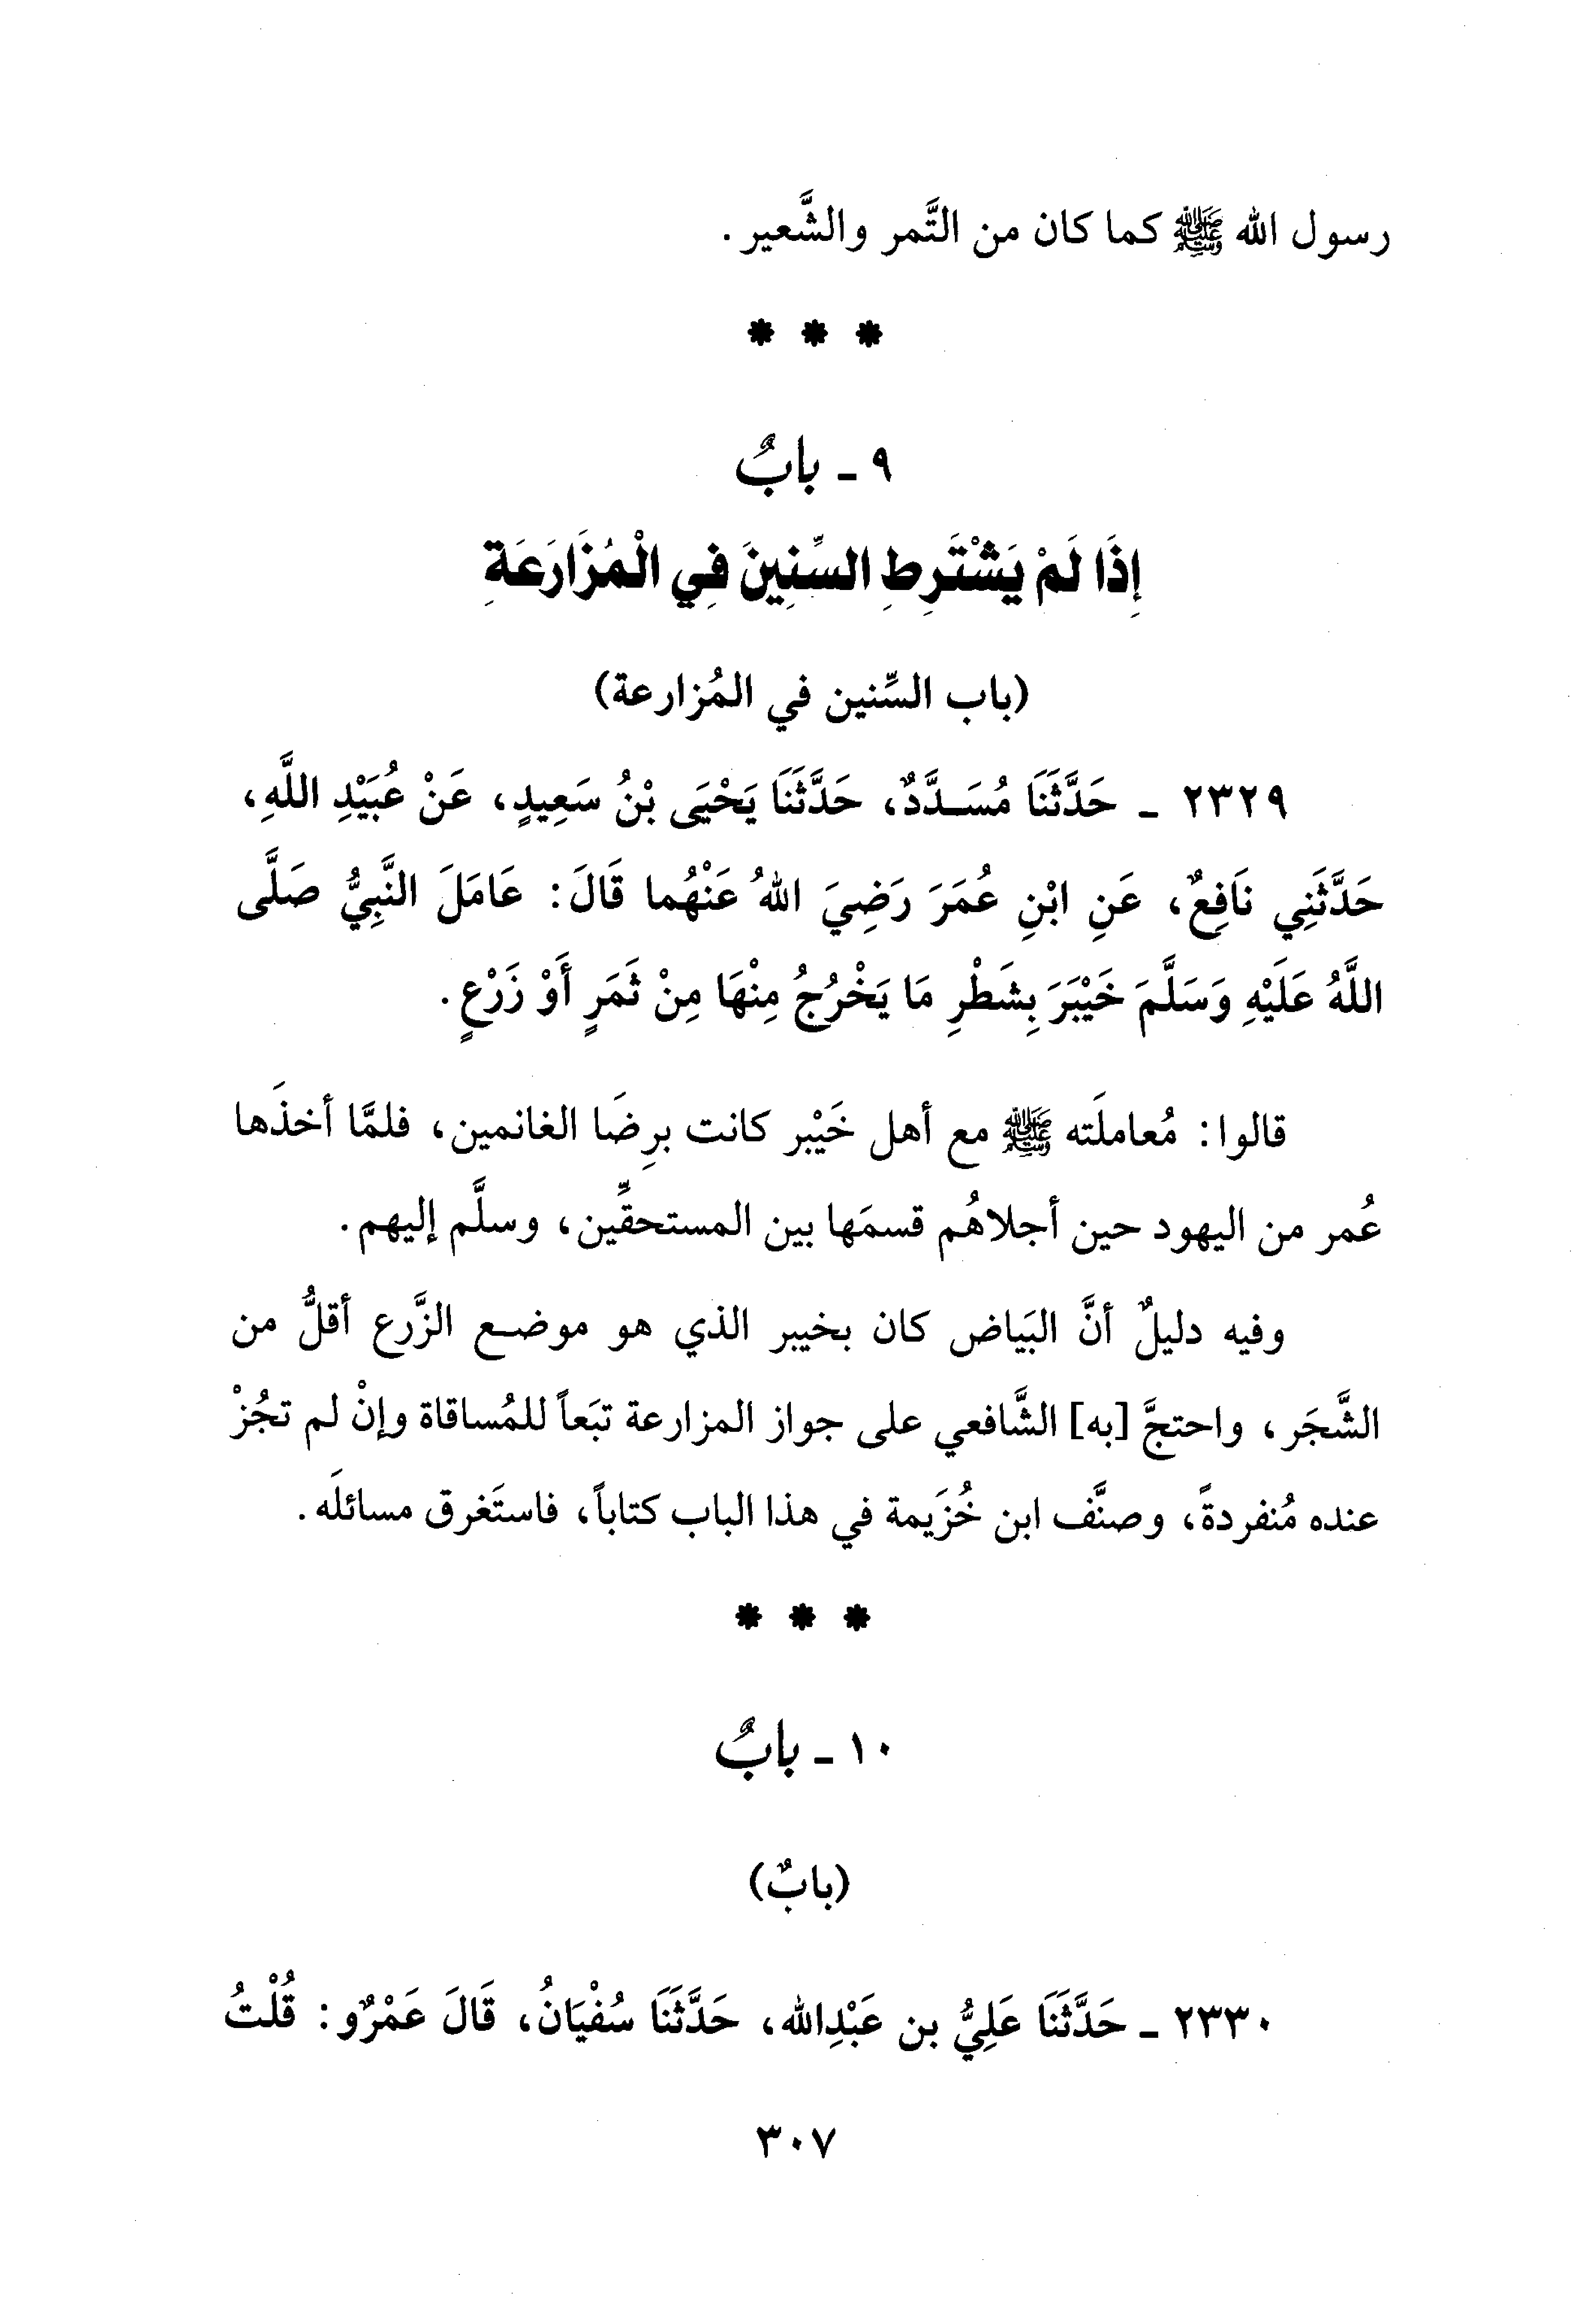 رسول الله ﷺ كما كان من التَّمر والشَّعير .
* * *
٩ ـ بابٌ
إِذَا لَمْ يَشْتَرِطِ السِّنِينَ فِي الْمُزَارَعَةِ
(باب السِّنين في المُزارعة)
٢٣٢٩ ـ حَدَّثَنَا مُسَـدَّدٌ، حَدَّثَنَا يَحْيَى بْنُ سَعِيدٍ، عَنْ عُبَيْدِ اللَّهِ،
حَدَّثَنِي نَافِعٌ، عَنِ ابْنِ عُمَرَ رَضِيَ اللهُ عَنْهُما قَالَ: عَامَلَ النَّبِيُّ صَلَّى
اللَّهُ عَلَيْهِ وَسَلَّمَ خَيْبَرَ بِشَطْرِ مَا يَخْرُجُ مِنْهَا مِنْ ثَمَرٍ أَوْ زَرْعٍ.
قالوا: مُعاملَته ﷺ مع أهل خَيْبر كانت برِضَا الغانمين، فلمَّا أخذَها
عُمر من اليهود حين أجلاهُم قسمَها بين المستحقِّين، وسلَّم إليهم.
وفيه دليلٌ أنَّ البَياض كان بخيبر الذي هو موضـع الزَّرع أقلُّ من
الشَّجَر، واحتجَّ [به] الشَّافعي على جواز المزارعة تبَعاً للمُساقاة وإنْ لم تجُزْ
عنده مُنفردةً، وصنَّف ابن خُزَيمة في هذا الباب كتاباً، فاستَغرق مسائلَه.
* * *
١٠ ـ بابٌ
(بابٌ)
٢٣٣٠ ـ حَدَّثَنَا عَلِيُّ بن عَبْدِالله، حَدَّثَنَا سُفْيَانُ، قَالَ عَمْرٌو: قُلْتُ
٣٠٧